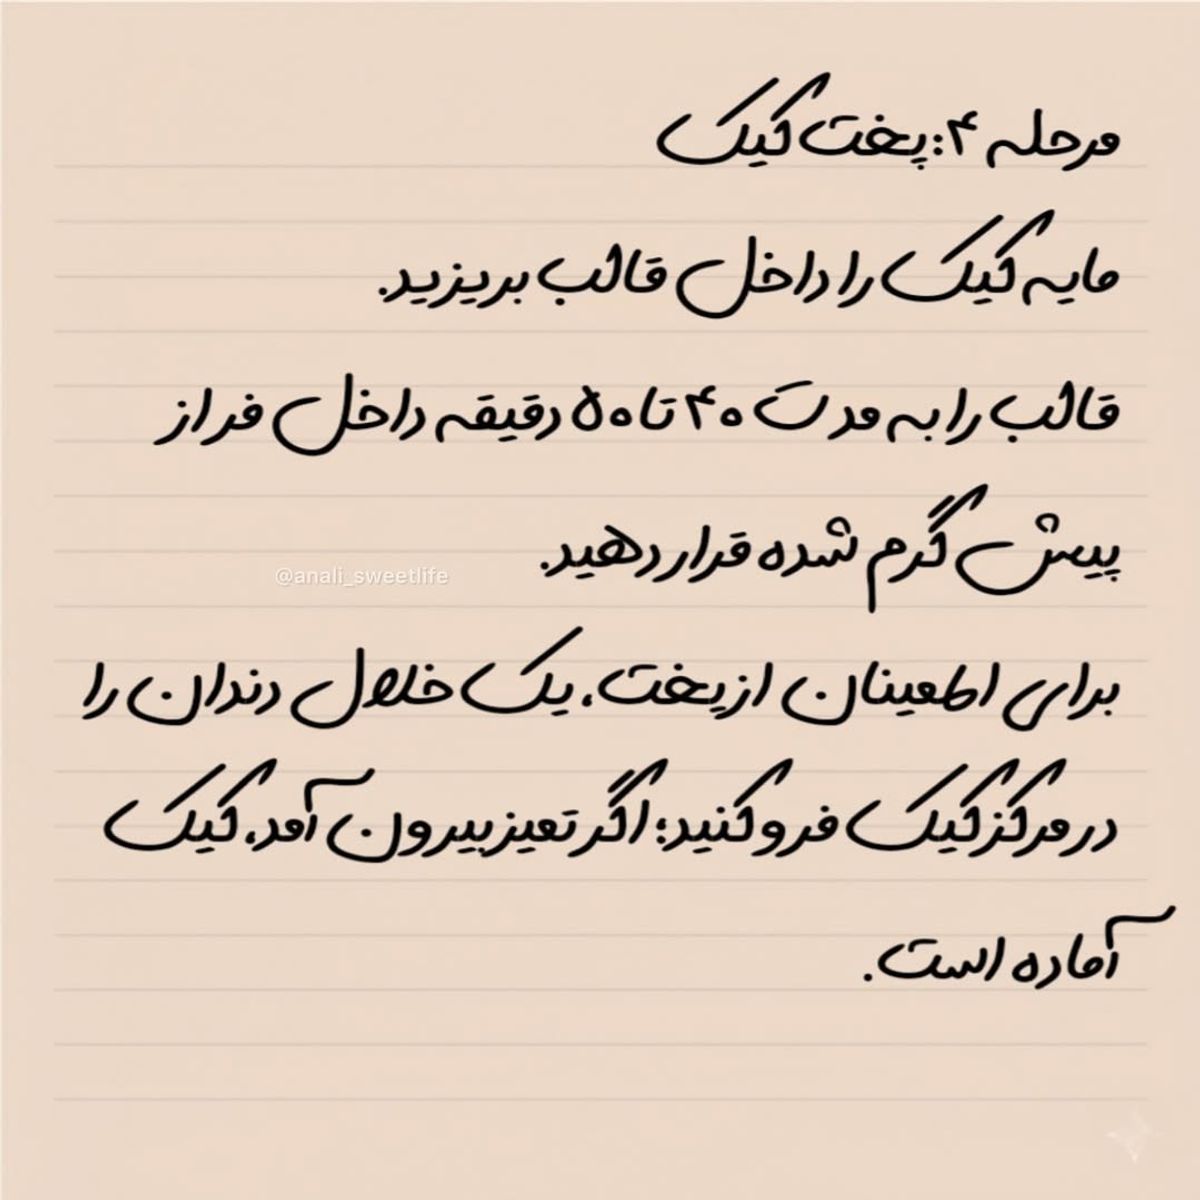 مرحله ۴: پخت کیک
مایه کیک را داخل قالب بریزید.
قالب را به مدت ۴۰ تا ۵۰ دقیقه داخل فر از
پیش گرم شده قرار دهید.
@anali_sweetlife
برای اطمینان از پخت، یک خلال دندان را
در مرکز کیک فرو کنید؛ اگر تمیز بیرون آمد، کیک
آماده است.